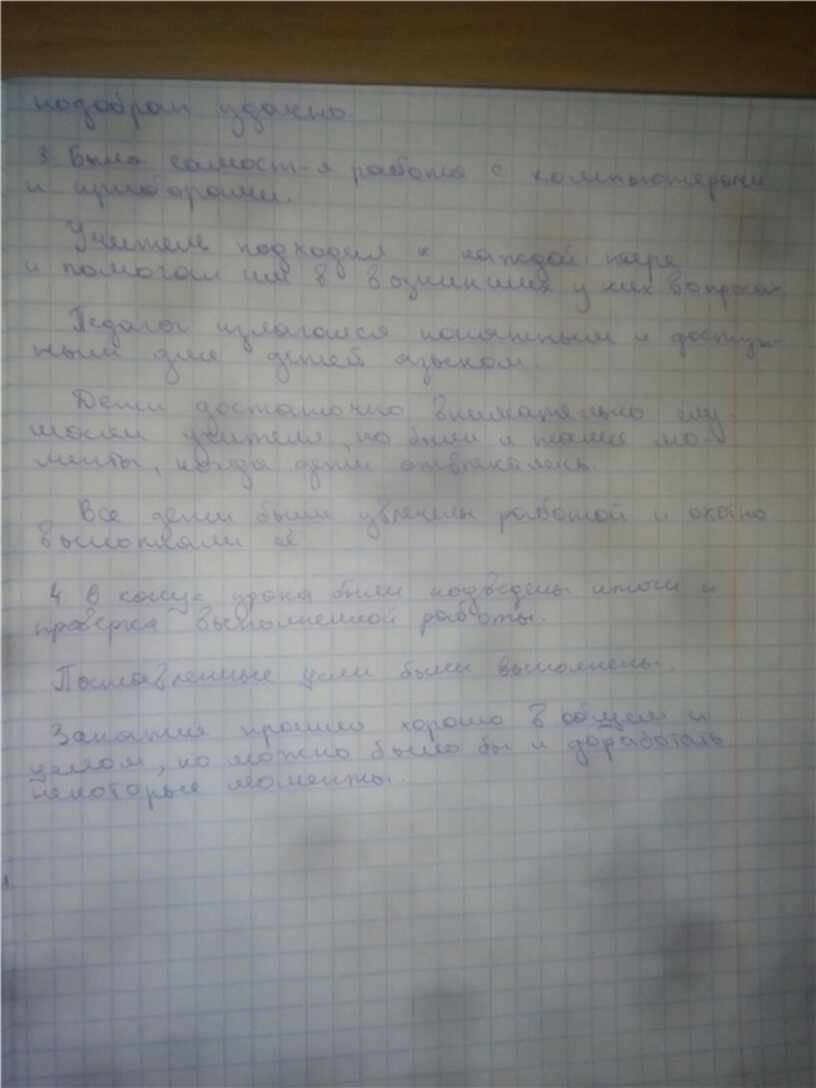 подобран удачно.
3. Была самост-я работа с компьютерами
и приборами.
Учитель подходил к каждой паре
и помогал им в возникших у них вопросах.
Педагог излагался понятным и доступ-
ным для детей языком.
Дети достаточно внимательно слу-
шали учителя, но были и такие мо-
менты, когда дети отвлекались.
Все дети были увлечены работой и охотно
выполняли её
4 В конце урока были подведены итоги и
проверка выполненной работы.
Поставленные цели были выполнены.
Занятия прошло хорошо в общем и
целом, но можно было бы и доработать
некоторые моменты.